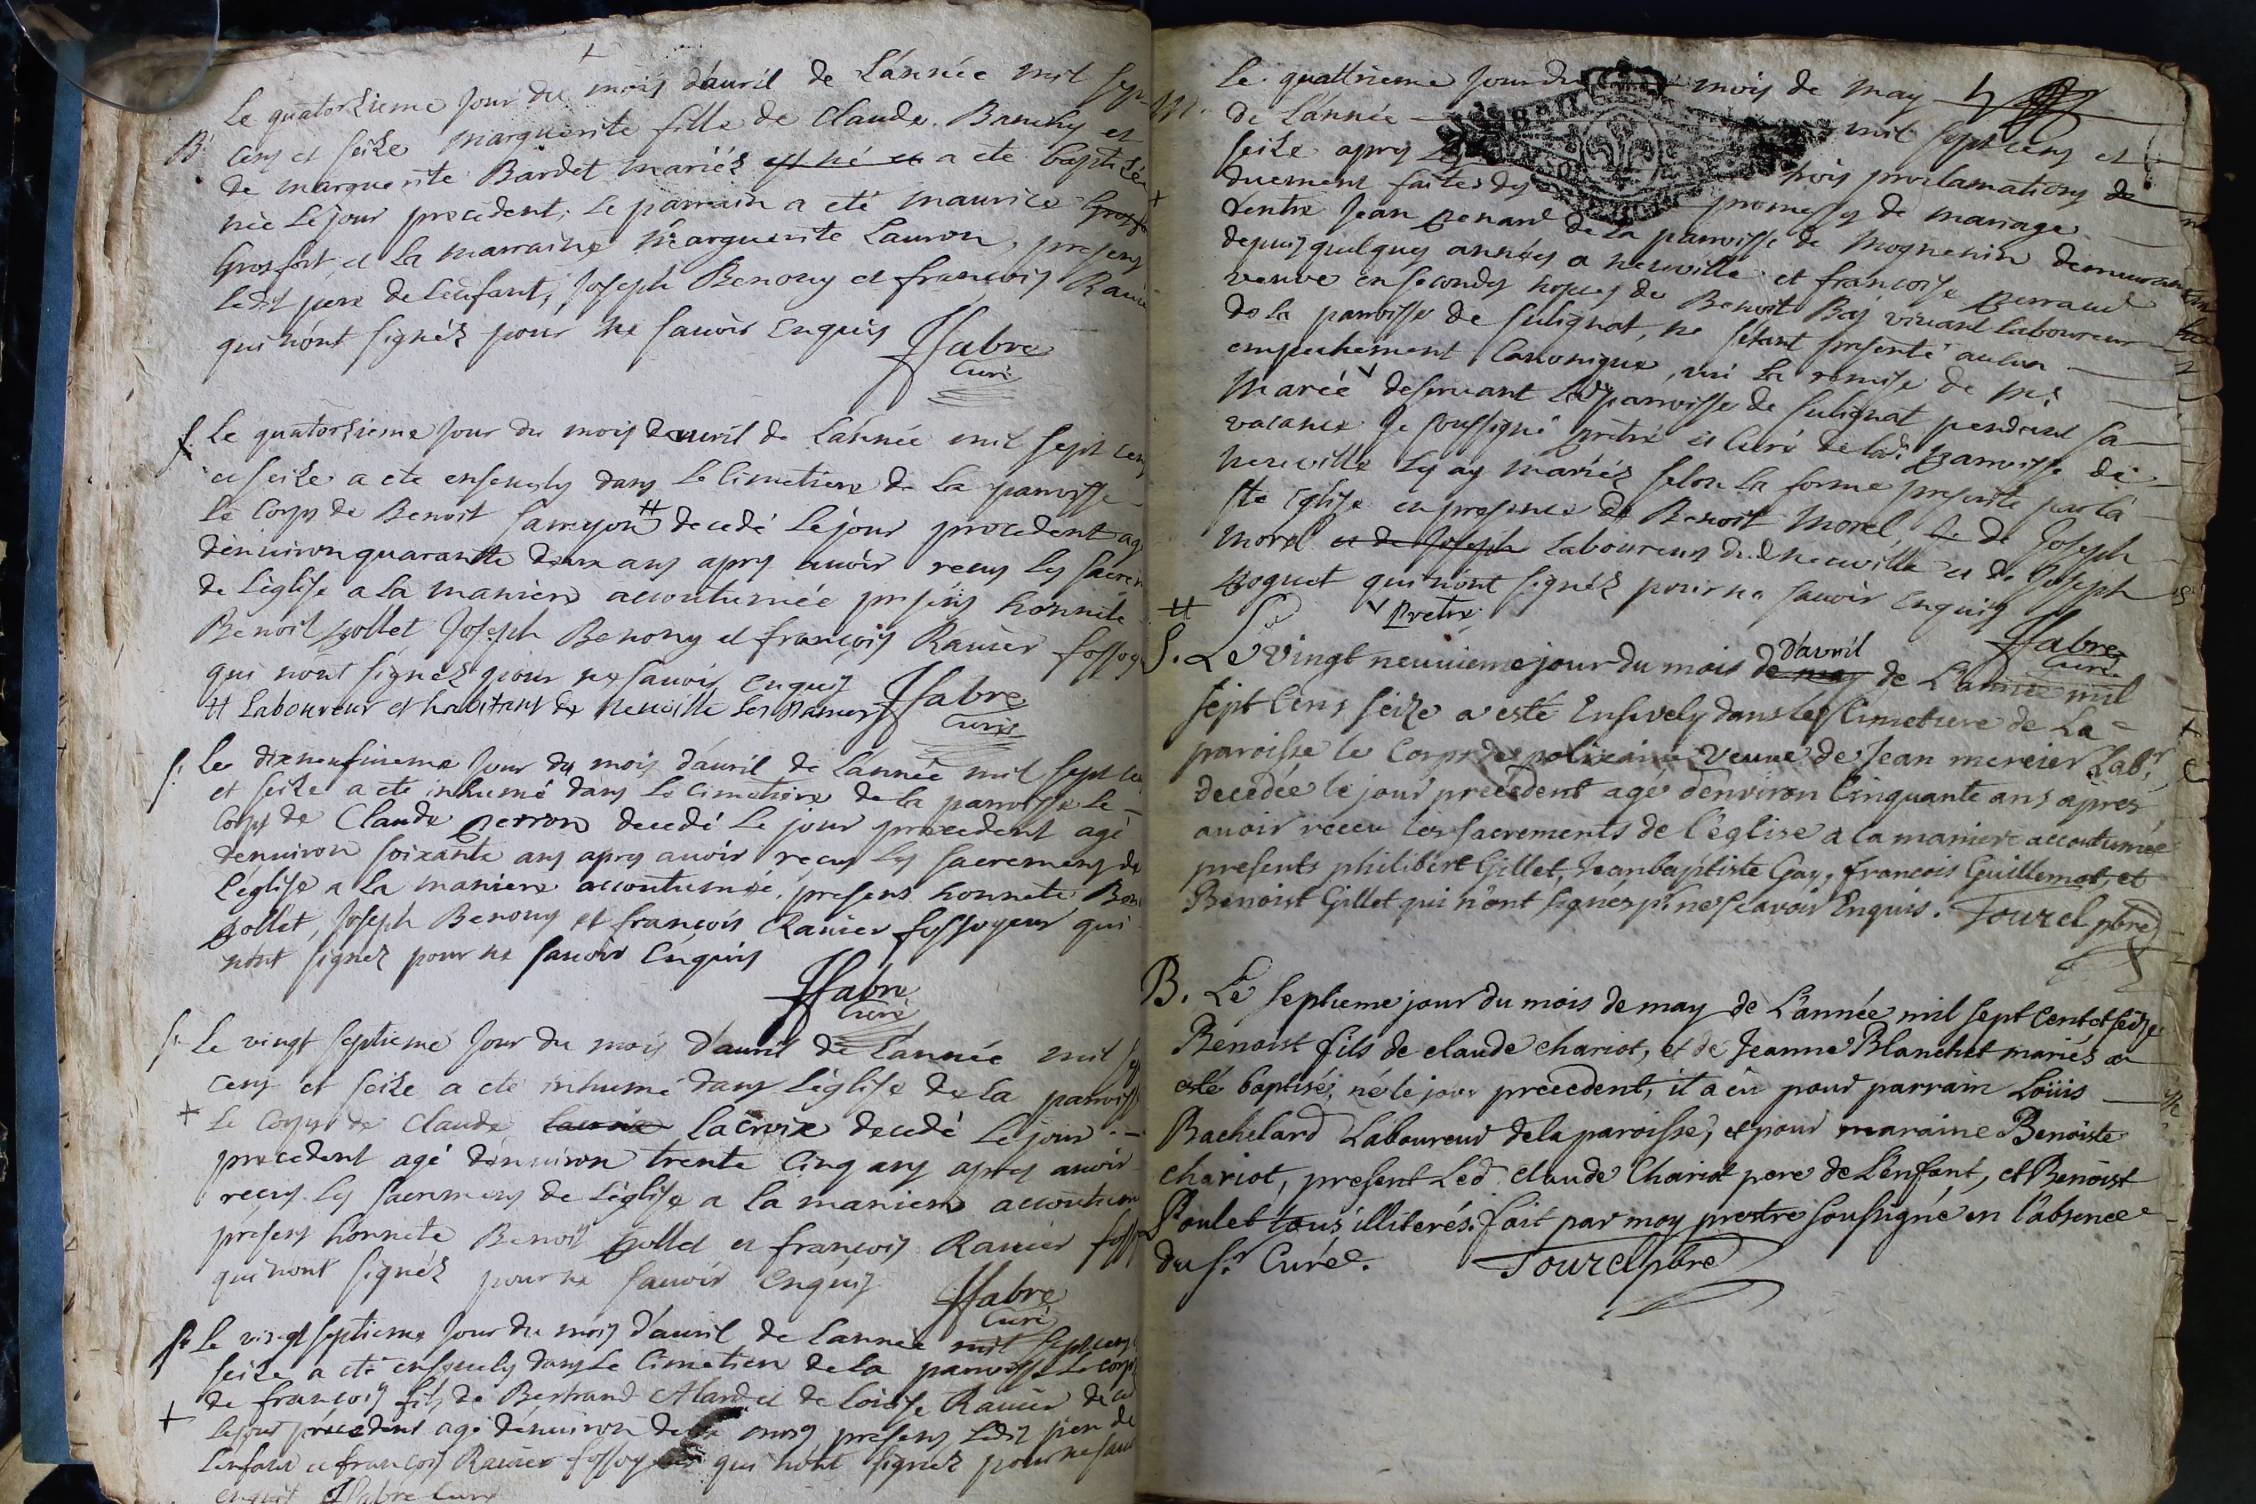 Le quatorsieme Jour du mois d'auril de L'année mil sept
B. cens et seize marguerite fille de Claude Banchy et
de marguerite Bardet mariés est né et a eté baptisée
née Le jour precedent, Le parrain a eté maurice
Grosfort, et la marraine Marguerite Lauron, presens
ledit pere de L'enfant, Joseph Benony et françois Rauier
qui n'ont signés pour ne sauoir Enquis
JFabre
Curé
S. Le quatorsieme Jour du mois d'auril de L'année mil sept cens
et seize a eté enseuely dans Le Cimetiere de La parroisse
Le Corps de Benoit # decedé Le jour precedent agé
denuiron quarante deux ans aprs auoir recus les sacremens
de L'église a la maniere accoutumée presens honnete
Benoit pollet Joseph Benony et françois Rauier fossoyeur
qui n'ont signés pour ne sauoir enquis
JFabre
Curé
# Laboureur et habitant de neuuille Les Dames
S. Le dixneufuieme Jour du mois d'auril de L'année mil sept cens
et seize a eté inhumé dans Le Cimetiere de la parroisse Le
Corps de Claude perron decedé Le jour precedent agé
denuiron soixante ans aprs auoir recus les sacremens de
L'église a La maniere accoutumée, presens honnete Benoit
pollet, Joseph Benony et françois Rauier fossoyeur qui
n'ont signez pour ne sauoir Enquis
JFabre
Curé
S. Le vingt septieme Jour du mois d'auril de L'année mil sept
cens et seize a eté inhumé dans L'église de La parroisse
+ Le Corps de Claude Lacroix Lacroix decedé Le jour
precedent agé denuiron trente Cinq ans aprés auoir
recus les sacremens de L'église a la maniere accoutumée
presens honnete Benoit pollet et françois Rauier fossoyeur
qui n'ont signés pour ne sauoir Enquis
JFabre
Curé
S. Le vingt septieme Jour du mois d'auril de L'année mil sept cens
seize a eté enseuely dans Le Cimetiere de la parroisse Le corps
de françois fils de Bertrand Alardet de Loüise Rauier decedé
+ Le jour precedent agé denuiron deux mois presens Ledit pere de
L'enfant et françois Rauier fossoyeur qui n'ont signez pour ne sauoir
enquis JFabre Curé
Le quattrieme Jour du mois de may
M. de L'année mil sept cens et
seize aprés Les trois proclamations
duement faites des promesses de mariage
d'entre Jean Renard de La parroisse de Mogneniu demeurant
depuis quelques années a neuuille et françoise perraud
veuve en secondes noces de Benoit Baj viuant Laboureur
de La parroisse de sulignat, ne s'étant presenté aucun
empechement Canonique, uu La remise de Mr
Marée v deseruant La parroisse de sulignat pendant sa
vacance Je soussigné prêtre et Curé de Lade parroisse de
neuuille les ay mariés selon la forme prescrite par La
ste Eglise en presence de Benoit Morel, de Joseph
morel et de Joseph Laboureurs dud neuuille et de Joseph
poquet qui n'ont signés pour ne sauoir Enquis
v Prêtre
JFabre
Curé
S. Le Vingt neuuieme jour du mois de may d'avril de L'année mil
sept Cens seize a esté Ensevely dans Le Cimetiere de La
paroisse le Corps de Veuue de Jean mercier Labr,
decedée le jour precedent agé d'environ Cinquante ans apres
auoir receu les sacrements de l'église a la maniere accoutumée
presents philibert Gillet, Jean baptiste Gay, francois Guillemot, et
Benoist Gillet qui n'ont signés pr ne scavoir Enquis. Tourel pbre
B. Le septieme jour du mois de may de L'année mil sept Cent et seize
Benoist fils de claude chariot, et de Jeanne Blanchet mariés a
esté baptisé, né le jour precedent, il a eû pour parrain Loüis
Bachelard Laboureur de la paroisse, et pour maraine Benoiste
chariot, present Led. claude Chariot pere de L'enfant, et Benoist
Poulet tous illiterés. fait par moy prestre soussigné en l'absence
du Sr Curée. Tourel pbre